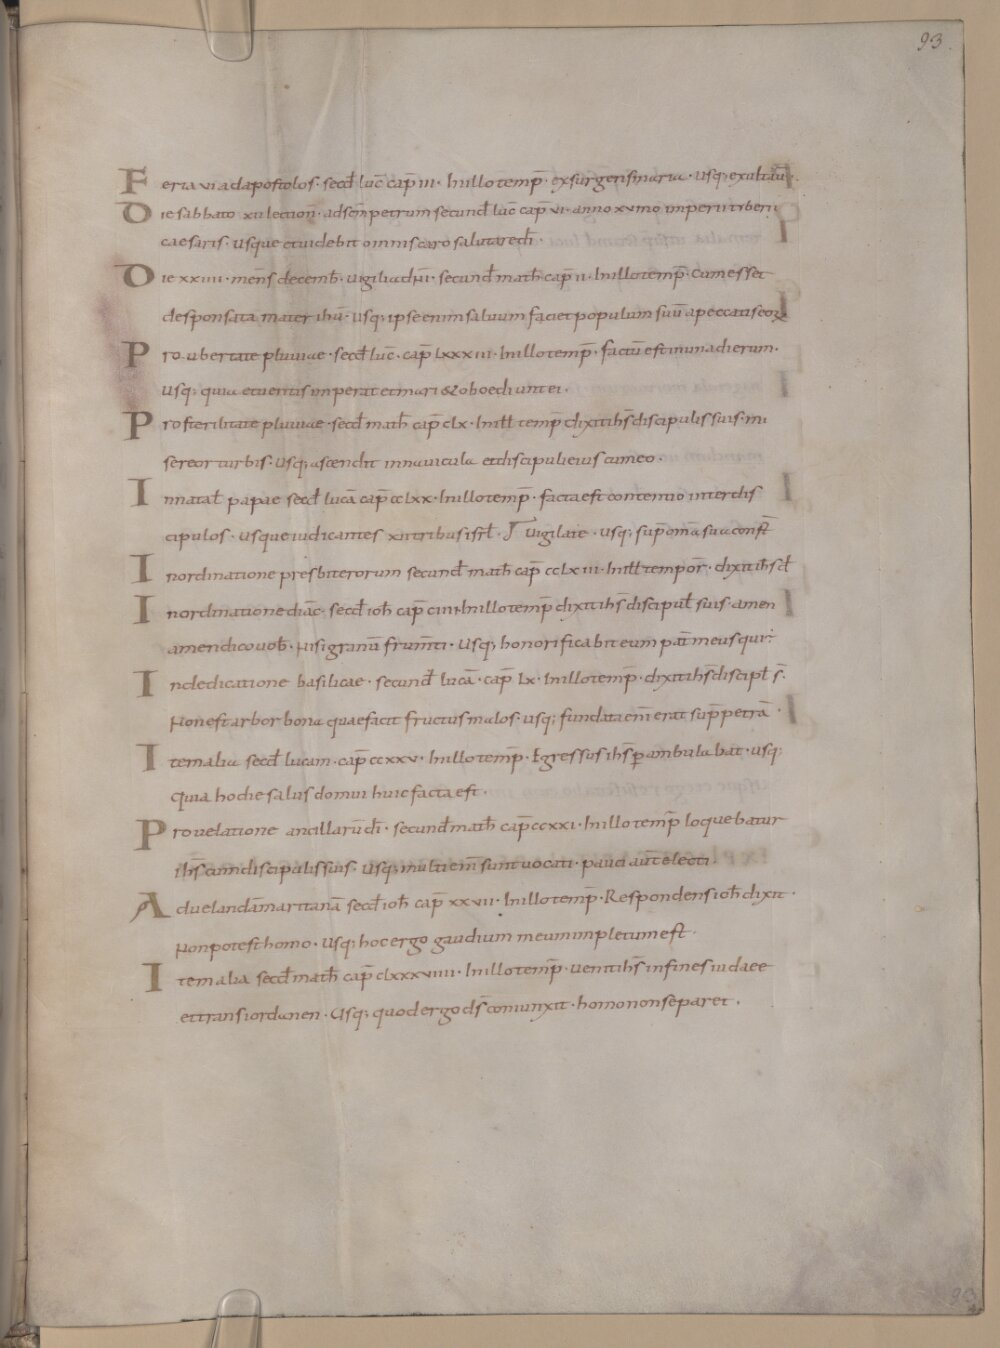 93
Feria vi ad apostolos · secd̄ luc̄ cap̄ iii · In illo temp̄ · exsurgens maria · usq; exultau̅ ·
Die sabbato xii lection̄ · ad scm̄ petrum secund̄ luc̄ cap̄ vi · anno xvmo imperii tyberii
caesaris · usque et uidebit omnis caro salutare dī ·
Die xxiiii · mens̄ decemb̄ · uigilia dn̄i · secund̄ math̄ cap̄ ii · In illo temp̄ · cum esset
desponsata mater ihū · usq; ipse enim saluum faciet populum suū a peccatis eoꝝ
Pro ubertate pluuiae · secd̄ luc̄ · cap̄ lxxxiii · In illo temp̄ · factū est in una dierum ·
usq; quia et uentis imperat et mari & oboediunt ei ·
Pro sterilitate pluuiae · secd̄ math̄ cap̄ clx · In ill̄ temp̄ dixit ihs̄ discipulis suis · mi
sereor turbis · usq; ascendit in nauicula et discipuli eius cum eo ·
In natal̄ papae secd̄ lucā cap̄ cclxx · In illo temp̄ · facta est contentio inter dis
cipulos · usque iudicantes xii tribus isrl̄ · uigilate · usq; sup̄ omā sua const̄
In ordinatione presbiterorum secund̄ math̄ cap̄ cclxiii · In ill̄ tempor̄ · dixit ihs̄ d̄
In ordinatione diac̄ · secd̄ ioh̄ cap̄ ciiii · In illo temp̄ dixit ihs̄ discipul̄ suis · amen
amen dico uob̄ · nisi granū frum̄ti · usq; honorificabit eum pat̄ meus qui ·
In dedicatione basilicae · secund̄ lucā · cap̄ lx · In illo temp̄ · dixit ihs̄ discipl̄ s̄ ·
Non est arbor bona quae facit fructus malos · usq; fundata eni̅ erat sup̄ petrā ·
Item alia secd̄ lucam · cap̄ ccxxv · In illo temp̄ · Egressus ihs̄ ꝑambulabat · usq;
quia hodie salus domui huic facta est ·
Pro uelatione ancillarū dī · secund̄ math̄ cap̄ ccxxi · In illo temp̄ loquebatur
ihs̄ cum discipulis suis · usq; multi em̄ sunt uocati · pauci aut̄ electi ·
Ad uelandā maritanā secd̄ ioh̄ cap̄ xxvii · In illo temp̄ · Respondens ioh̄ dixit ·
Non potest homo · usq; hoc ergo gaudium meum impletum est ·
Item alia secd̄ math̄ cap̄ clxxxviiii · In illo temp̄ · uenit ihs̄ in fines iudaee
et trans iordanen · usq; quod ergo ds̄ coniunxit · homo non separet ·
93